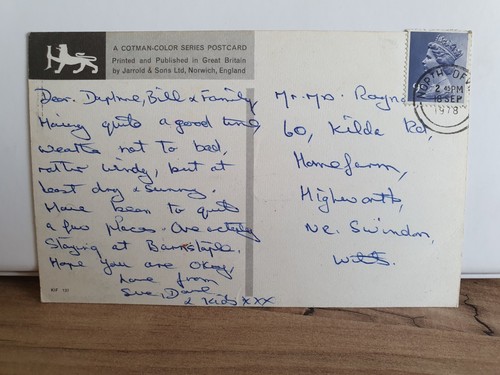 A COTMAN-COLOR SERIES POSTCARD
Printed and Published in Great Britain
by Jarrold & Sons Ltd, Norwich, England
Dear Daphne, Bill & Family
Having quite a good time,
weather not to bad,
rather windy, but at
least dry & sunny.
Have been to quite
a few places. Are actually
staying at Barnstaple.
Hope you are okay,
Love from
Sue, Dave
& kids xxx
Mr. Mrs
60, Kilda Rd,
Homefarm,
Highworth,
Nr. Swindon,
Wilts.
NORTH DEV
2 PM
18 SEP
1978